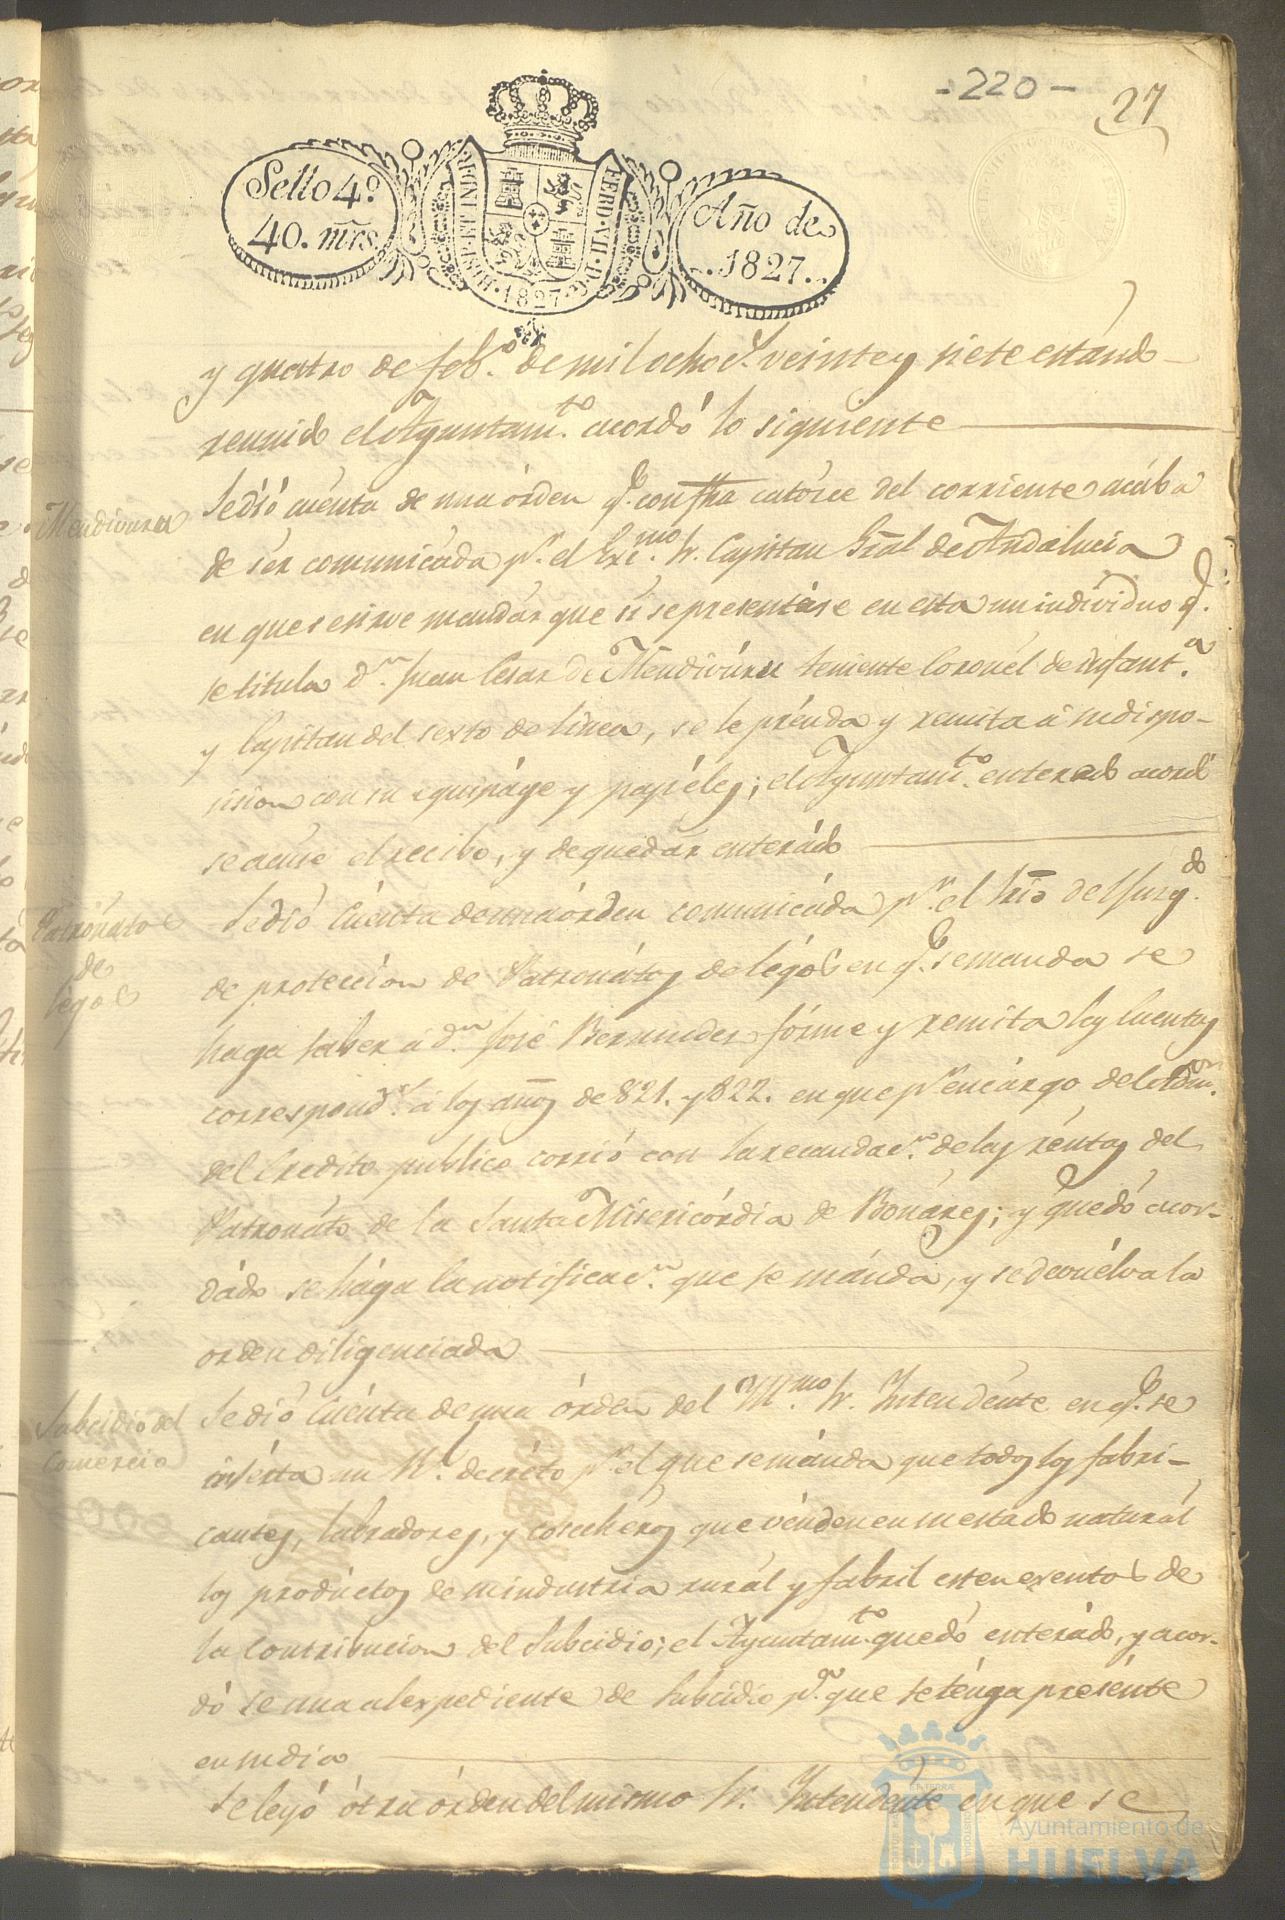 -220-
27
Sello 4º
40. mrs.
HISP. ET IND. R. FERD. VII. D. G.
1827
Año de
1827.
y quatro de febº. de mil ochocs. veinte y siete estando
reunido el Ayuntamto. acordó lo siguiente
Mendivuru
Se dió cuenta de una órden q. con fha catórce del corriente acába
de ser comunicada pr. el Excmo. Sr. Capittan Gral de Andalucia
en que se sirve mandár que si se presentáse en esta un indivíduo q.
se titula Dn. Juan Cesar de Mendivúru teniente Coronél de infanta.
y Capitan del sexto de linea, se le prénda y remita á su dispo-
sision con su equipáge y papéles; el Ayuntamto. enterado acordó
se acuse el recibo, y de quedár enterádo
Patronato
de
legos
Se dió Cuenta de una órden comunicáda pr. el Srio del Juzgdo.
de proteccion de Patronátos de légos en q. se manda se
haga saber á Dn. José Bermudez fórme y remita las Cuentas
correspondtes. á los años de 821. y 822. en que pr. encárgo del Admor.
del Credito público corrió con la recaudacn. de las réntas del
Patronáto de la Santa Misericórdia de Bonáres; y quedó acor-
dádo se hága la notificacn. que se mánda, y se devuélva la
orden diligenciada
Subcidio del
Comercio
Se dió Cuénta de una órden del Yllmo. Sr. Intendénte en q. se
insérta un Rl. decréto pr. el que se mánda que todos los fabri-
cantes, labradores, y cosechéros que vénden en su estado naturál
los prodúctos de su industria rurál y fabril esten exentos de
la Contribucion del Subcidio; el Ayuntamto. quedó enterádo, y acor-
dó se una al expediente de Subcidio pa. que se ténga presénte
en su dia
Se leyó ótra órden del mismo Sr. Intendénte en que se
Ayuntamiento de
HUELVA